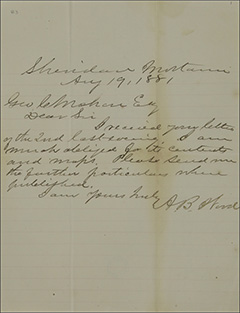 Sheridan Montana
Aug 19, 1881
Geo C Mahon Esq
Dear Sir
I received your letter
of the 2nd last evening I am
much obliged for its contents
and maps. Please send me
the further particulars where
published.
I am Yours truly
A B. Wood